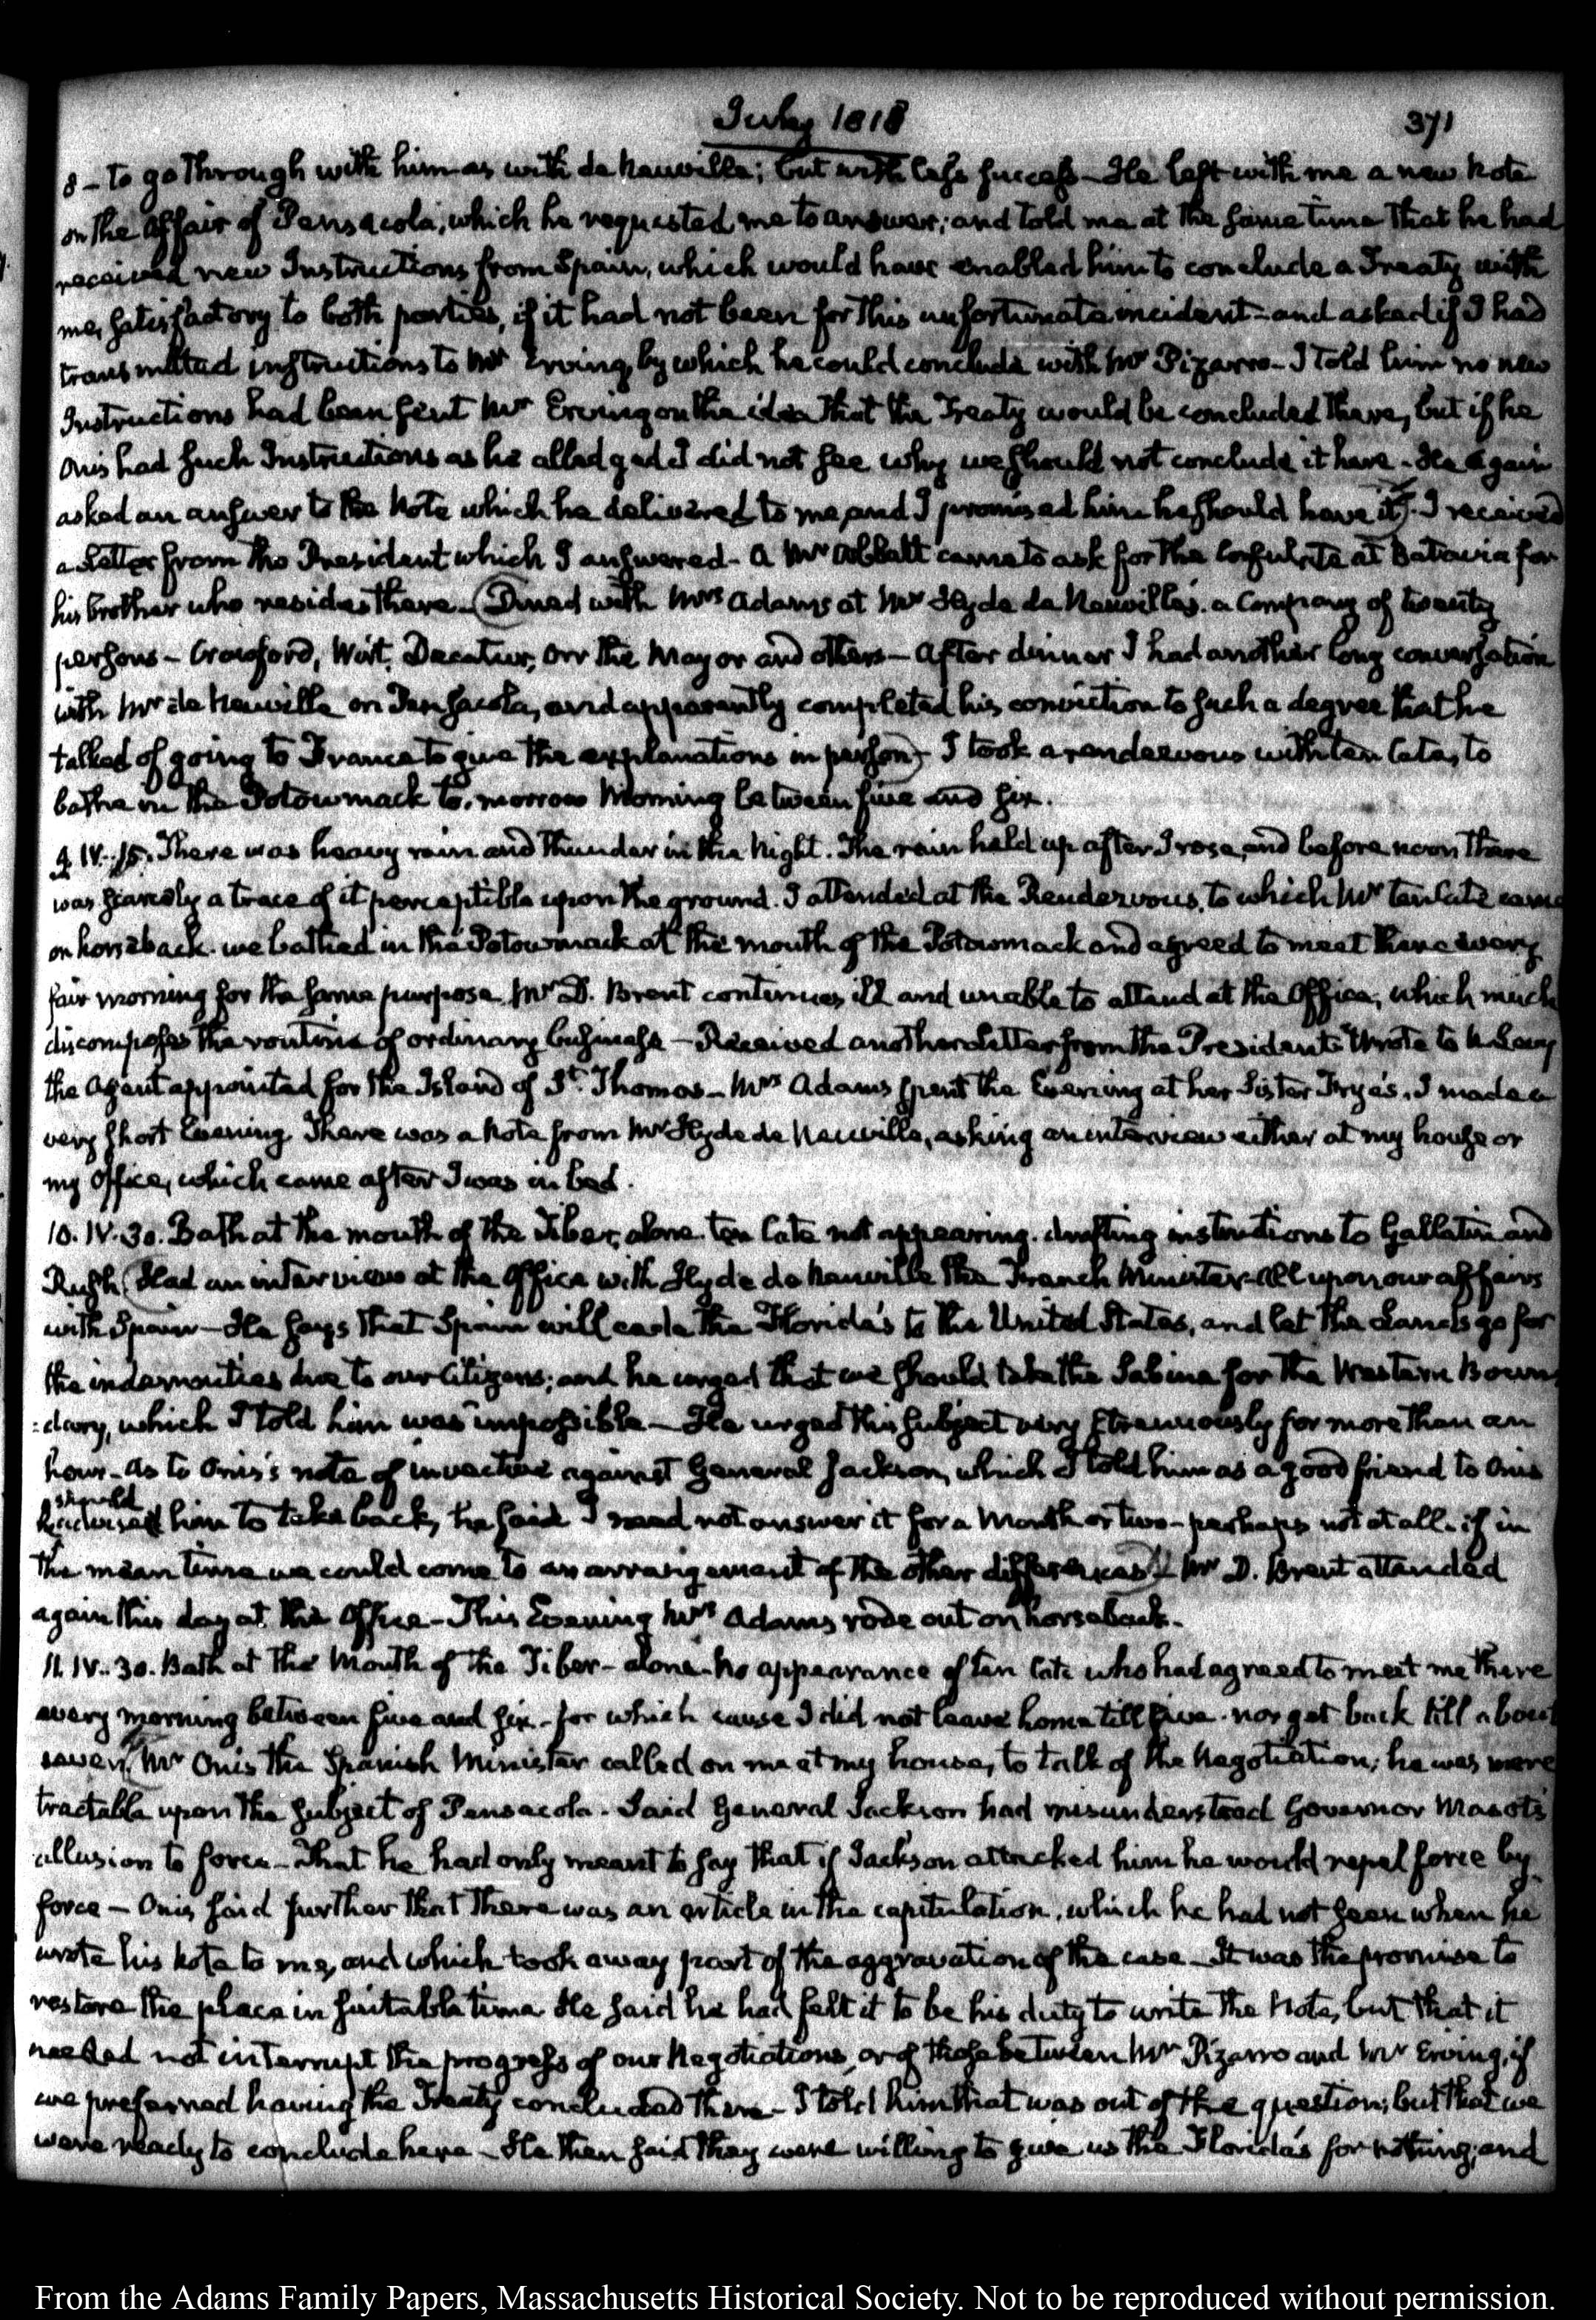 July 1818
371
8 – to go through with him as with de Neuville; but with less success – He left with me a new Note
on the affair of Pensacola, which he requested me to answer; and told me at the same time that he had
received new Instructions from Spain, which would have enabled him to conclude a Treaty with
me, satisfactory to both parties, if it had not been for this unfortunate incident – and asked if I had
transmitted instructions to Mr Erving, by which he could conclude with Mr Pizarro – I told him no new
Instructions had been sent Mr Erving on the idea that the Treaty would be concluded there, but if he
Onis had such Instructions as he alledged I did not see why we should not conclude it here – He again
asked an answer to the Note which he delivered to me, and I promised him he should have it) – I received
a Letter from the President which I answered – A Mr Abbatt came to ask for the Consulate at Batavia for
his brother who resides there – (Dined with Mrs Adams at Mr Hyde de Neuville's. a Company of twenty
persons – Crawford, Wirt, Decatur, Orr the Mayor and others – After dinner I had another long conversation
with Mr de Neuville on Pensacola, and apparently completed his conviction to such a degree that he
talked of going to France to give the explanations in person) – I took a rendezvous with ten Cate, to
bathe in the Potowmack to-morrow Morning between five and six.
9. IV. 15. There was heavy rain and thunder in the Night. The rain held up after I rose, and before noon there
was scarcely a trace of it perceptible upon the ground. I attended at the Rendezvous, to which Mr ten Cate came
on horseback. we bathed in the Potowmack at the mouth of the Potowmack and agreed to meet there every
fair morning for the same purpose. Mr D. Brent continues ill and unable to attend at the Office, which much
discomposes the routine of ordinary business – Received another Letter from the President – Wrote to
the Agent appointed for the Island of St. Thomas – Mrs Adams spent the Evening at her Sister Frye's. I made a
very short Evening. There was a Note from Mr Hyde de Neuville, asking an interview either at my house or
my Office, which came after I was in bed.
10. IV. 30. Bath at the mouth of the Tiber, alone. ten Cate not appearing. drafting instructions to Gallatin and
Rush. (Had an interview at the Office with Hyde de Neuville the French Minister – all upon our affairs
with Spain – He says that Spain will cede the Florida's to the United States, and let the Lands go for
the indemnities due to our Citizens; and he urged that we should take the Sabine for the Western Boun-
=dary, which I told him was impossible – He urged this subject very strenuously for more than an
hour – As to Onis's note of invective against General Jackson, which I told him as a good friend to Onis
he should advise him to take back, he said I need not answer it for a Month or two – perhaps not at all – if in
the mean time we could come to an arrangement of the other differences) – Mr D. Brent attended
again this day at the Office – This Evening Mrs Adams rode out on horseback.
11. IV. 30. Bath at the Mouth of the Tiber – alone. No appearance of ten Cate who had agreed to meet me there
every morning between five and six – for which cause I did not leave home till five. nor get back till about
seven. (Mr Onis the Spanish Minister called on me at my house, to talk of the Negotiation; he was more
tractable upon the subject of Pensacola. Said General Jackson had misunderstood Governor Masot's
allusion to force – That he had only meant to say that if Jackson attacked him he would repel force by
force – Onis said further that there was an article in the capitulation, which he had not seen when he
wrote his Note to me, and which took away part of the aggravation of the case – It was the promise to
restore the place in suitable time. He said he had felt it to be his duty to write the Note, but that it
needed not interrupt the progress of our Negotiations, or of those between Mr Pizarro and Mr Erving, if
we preferred having the Treaty concluded there – I told him that was out of the question; but that we
were ready to conclude here – He then said they were willing to give us the Florida's for nothing; and
From the Adams Family Papers, Massachusetts Historical Society. Not to be reproduced without permission.